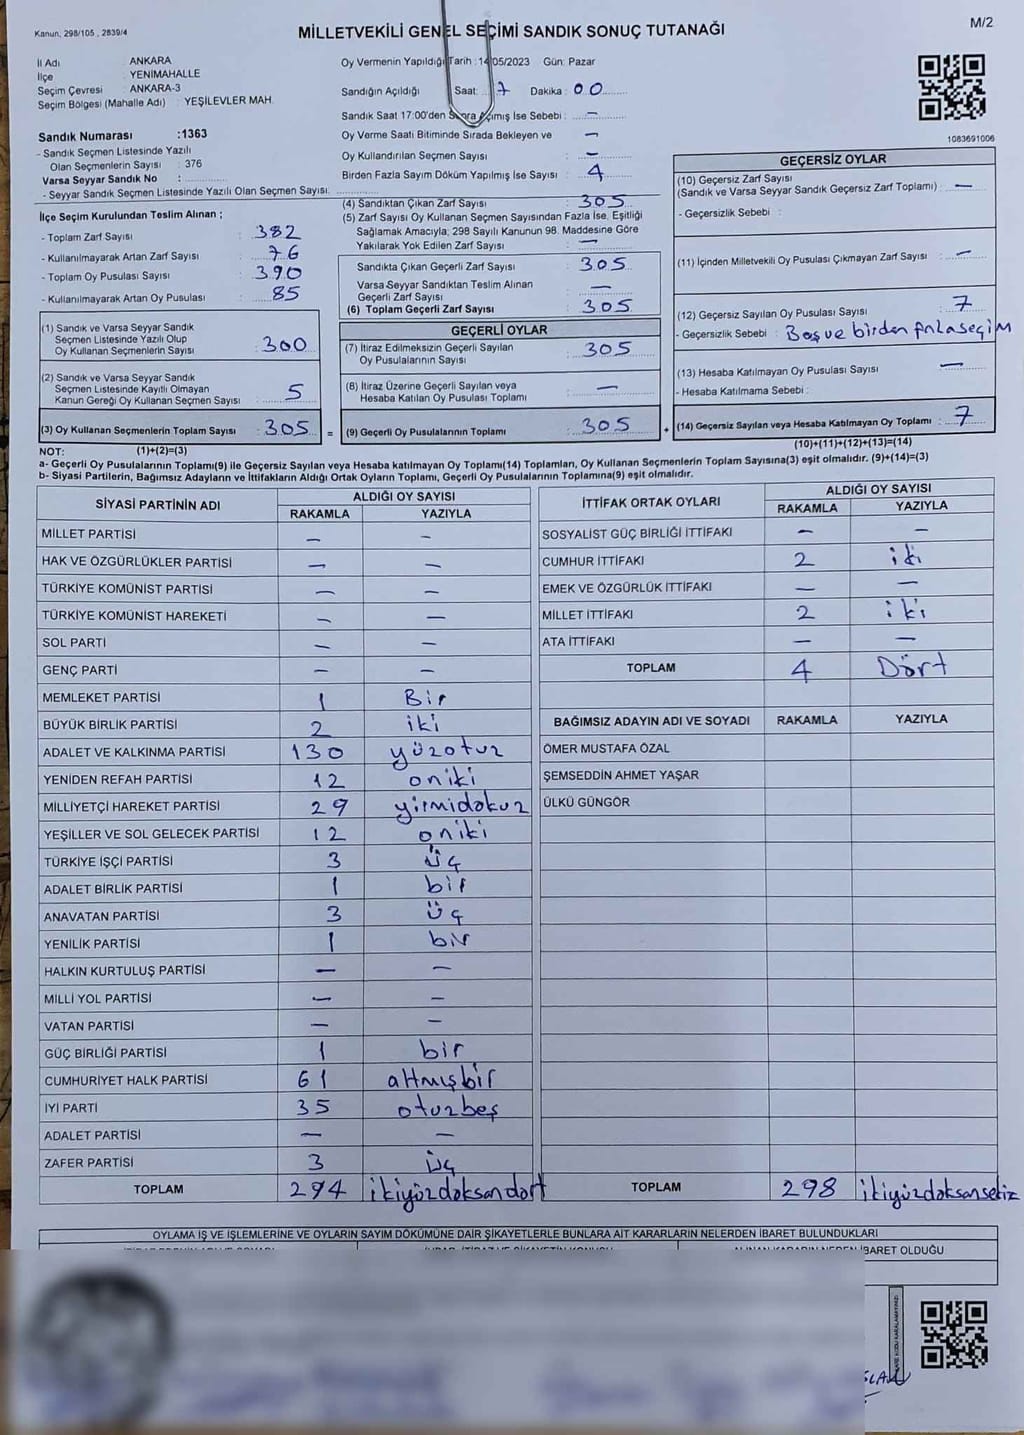 Kanun, 298/105 , 2839/4
MİLLETVEKİLİ GENEL SEÇİMİ SANDIK SONUÇ TUTANAĞI
M/2
İl Adı ANKARA
İlçe YENİMAHALLE
Seçim Çevresi : ANKARA-3
Seçim Bölgesi (Mahalle Adı) : YEŞİLEVLER MAH.
Oy Vermenin Yapıldığı Tarih : 14/05/2023 Gün: Pazar
Sandığın Açıldığı Saat: 17 Dakika : 00
Sandık Saat 17:00'den Sonra Açımış İse Sebebi : —
Oy Verme Saati Bitiminde Sırada Bekleyen ve —
Oy Kullandırılan Seçmen Sayısı —
Birden Fazla Sayım Döküm Yapılmış İse Sayısı : 4
1083691006
Sandık Numarası :1363
- Sandık Seçmen Listesinde Yazılı
Olan Seçmenlerin Sayısı : 376
Varsa Seyyar Sandık No :
- Seyyar Sandık Seçmen Listesinde Yazılı Olan Seçmen Sayısı:
İlçe Seçim Kurulundan Teslim Alınan ;
- Toplam Zarf Sayısı : 382
- Kullanılmayarak Artan Zarf Sayısı : 76
- Toplam Oy Pusulası Sayısı : 390
- Kullanılmayarak Artan Oy Pusulası : 85
(1) Sandık ve Varsa Seyyar Sandık
Seçmen Listesinde Yazılı Olup
Oy Kullanan Seçmenlerin Sayısı : 300
(2) Sandık ve Varsa Seyyar Sandık
Seçmen Listesinde Kayıtlı Olmayan
Kanun Gereği Oy Kullanan Seçmen Sayısı : 5
(3) Oy Kullanan Seçmenlerin Toplam Sayısı : 305 =
(4) Sandıktan Çıkan Zarf Sayısı : 305
(5) Zarf Sayısı Oy Kullanan Seçmen Sayısından Fazla İse, Eşitliği
Sağlamak Amacıyla; 298 Sayılı Kanunun 98. Maddesine Göre
Yakılarak Yok Edilen Zarf Sayısı : —
Sandıkta Çıkan Geçerli Zarf Sayısı : 305
Varsa Seyyar Sandıktan Teslim Alınan
Geçerli Zarf Sayısı : —
(6) Toplam Geçerli Zarf Sayısı : 305
GEÇERLİ OYLAR
(7) İtiraz Edilmeksizin Geçerli Sayılan
Oy Pusulalarının Sayısı : 305
(8) İtiraz Üzerine Geçerli Sayılan veya
Hesaba Katılan Oy Pusulası Toplamı : —
(9) Geçerli Oy Pusulalarının Toplamı : 305 +
GEÇERSİZ OYLAR
(10) Geçersiz Zarf Sayısı
(Sandık ve Varsa Seyyar Sandık Geçersiz Zarf Toplamı) : —
- Geçersizlik Sebebi :
(11) İçinden Milletvekili Oy Pusulası Çıkmayan Zarf Sayısı : —
(12) Geçersiz Sayılan Oy Pusulası Sayısı : 7
- Geçersizlik Sebebi : Boş ve birden fazla seçim
(13) Hesaba Katılmayan Oy Pusulası Sayısı : —
- Hesaba Katılmama Sebebi :
(14) Geçersiz Sayılan veya Hesaba Katılmayan Oy Toplamı : 7
NOT: (1)+(2)=(3) (10)+(11)+(12)+(13)=(14)
a- Geçerli Oy Pusulalarının Toplamı(9) ile Geçersiz Sayılan veya Hesaba katılmayan Oy Toplamı(14) Toplamları, Oy Kullanan Seçmenlerin Toplam Sayısına(3) eşit olmalıdır. (9)+(14)=(3)
b- Siyasi Partilerin, Bağımsız Adayların ve İttifakların Aldığı Ortak Oyların Toplamı, Geçerli Oy Pusulalarının Toplamına(9) eşit olmalıdır.
SİYASİ PARTİNİN ADI ALDIĞI OY SAYISI
RAKAMLA YAZIYLA
MİLLET PARTİSİ — —
HAK VE ÖZGÜRLÜKLER PARTİSİ — —
TÜRKİYE KOMÜNİST PARTİSİ — —
TÜRKİYE KOMÜNİST HAREKETİ — —
SOL PARTİ — —
GENÇ PARTİ — —
MEMLEKET PARTİSİ 1 Bir
BÜYÜK BİRLİK PARTİSİ 2 iki
ADALET VE KALKINMA PARTİSİ 130 yüzotuz
YENİDEN REFAH PARTİSİ 12 oniki
MİLLİYETÇİ HAREKET PARTİSİ 29 yirmidokuz
YEŞİLLER VE SOL GELECEK PARTİSİ 12 oniki
TÜRKİYE İŞÇİ PARTİSİ 3 üç
ADALET BİRLİK PARTİSİ 1 bir
ANAVATAN PARTİSİ 3 üç
YENİLİK PARTİSİ 1 bir
HALKIN KURTULUŞ PARTİSİ — —
MİLLİ YOL PARTİSİ — —
VATAN PARTİSİ — —
GÜÇ BİRLİĞİ PARTİSİ 1 bir
CUMHURİYET HALK PARTİSİ 61 altmışbir
İYİ PARTİ 35 otuzbeş
ADALET PARTİSİ — —
ZAFER PARTİSİ 3 üç
TOPLAM 294 ikiyüzdoksandört
İTTİFAK ORTAK OYLARI ALDIĞI OY SAYISI
RAKAMLA YAZIYLA
SOSYALİST GÜÇ BİRLİĞİ İTTİFAKI — —
CUMHUR İTTİFAKI 2 iki
EMEK VE ÖZGÜRLÜK İTTİFAKI — —
MİLLET İTTİFAKI 2 iki
ATA İTTİFAKI — —
TOPLAM 4 Dört
BAĞIMSIZ ADAYIN ADI VE SOYADI RAKAMLA YAZIYLA
ÖMER MUSTAFA ÖZAL
ŞEMSEDDİN AHMET YAŞAR
ÜLKÜ GÜNGÖR
TOPLAM 298 ikiyüzdoksansekiz
OYLAMA İŞ VE İŞLEMLERİNE VE OYLARIN SAYIM DÖKÜMÜNE DAİR ŞİKAYETLERLE BUNLARA AİT KARARLARIN NELERDEN İBARET BULUNDUKLARI
İBARET OLDUĞU